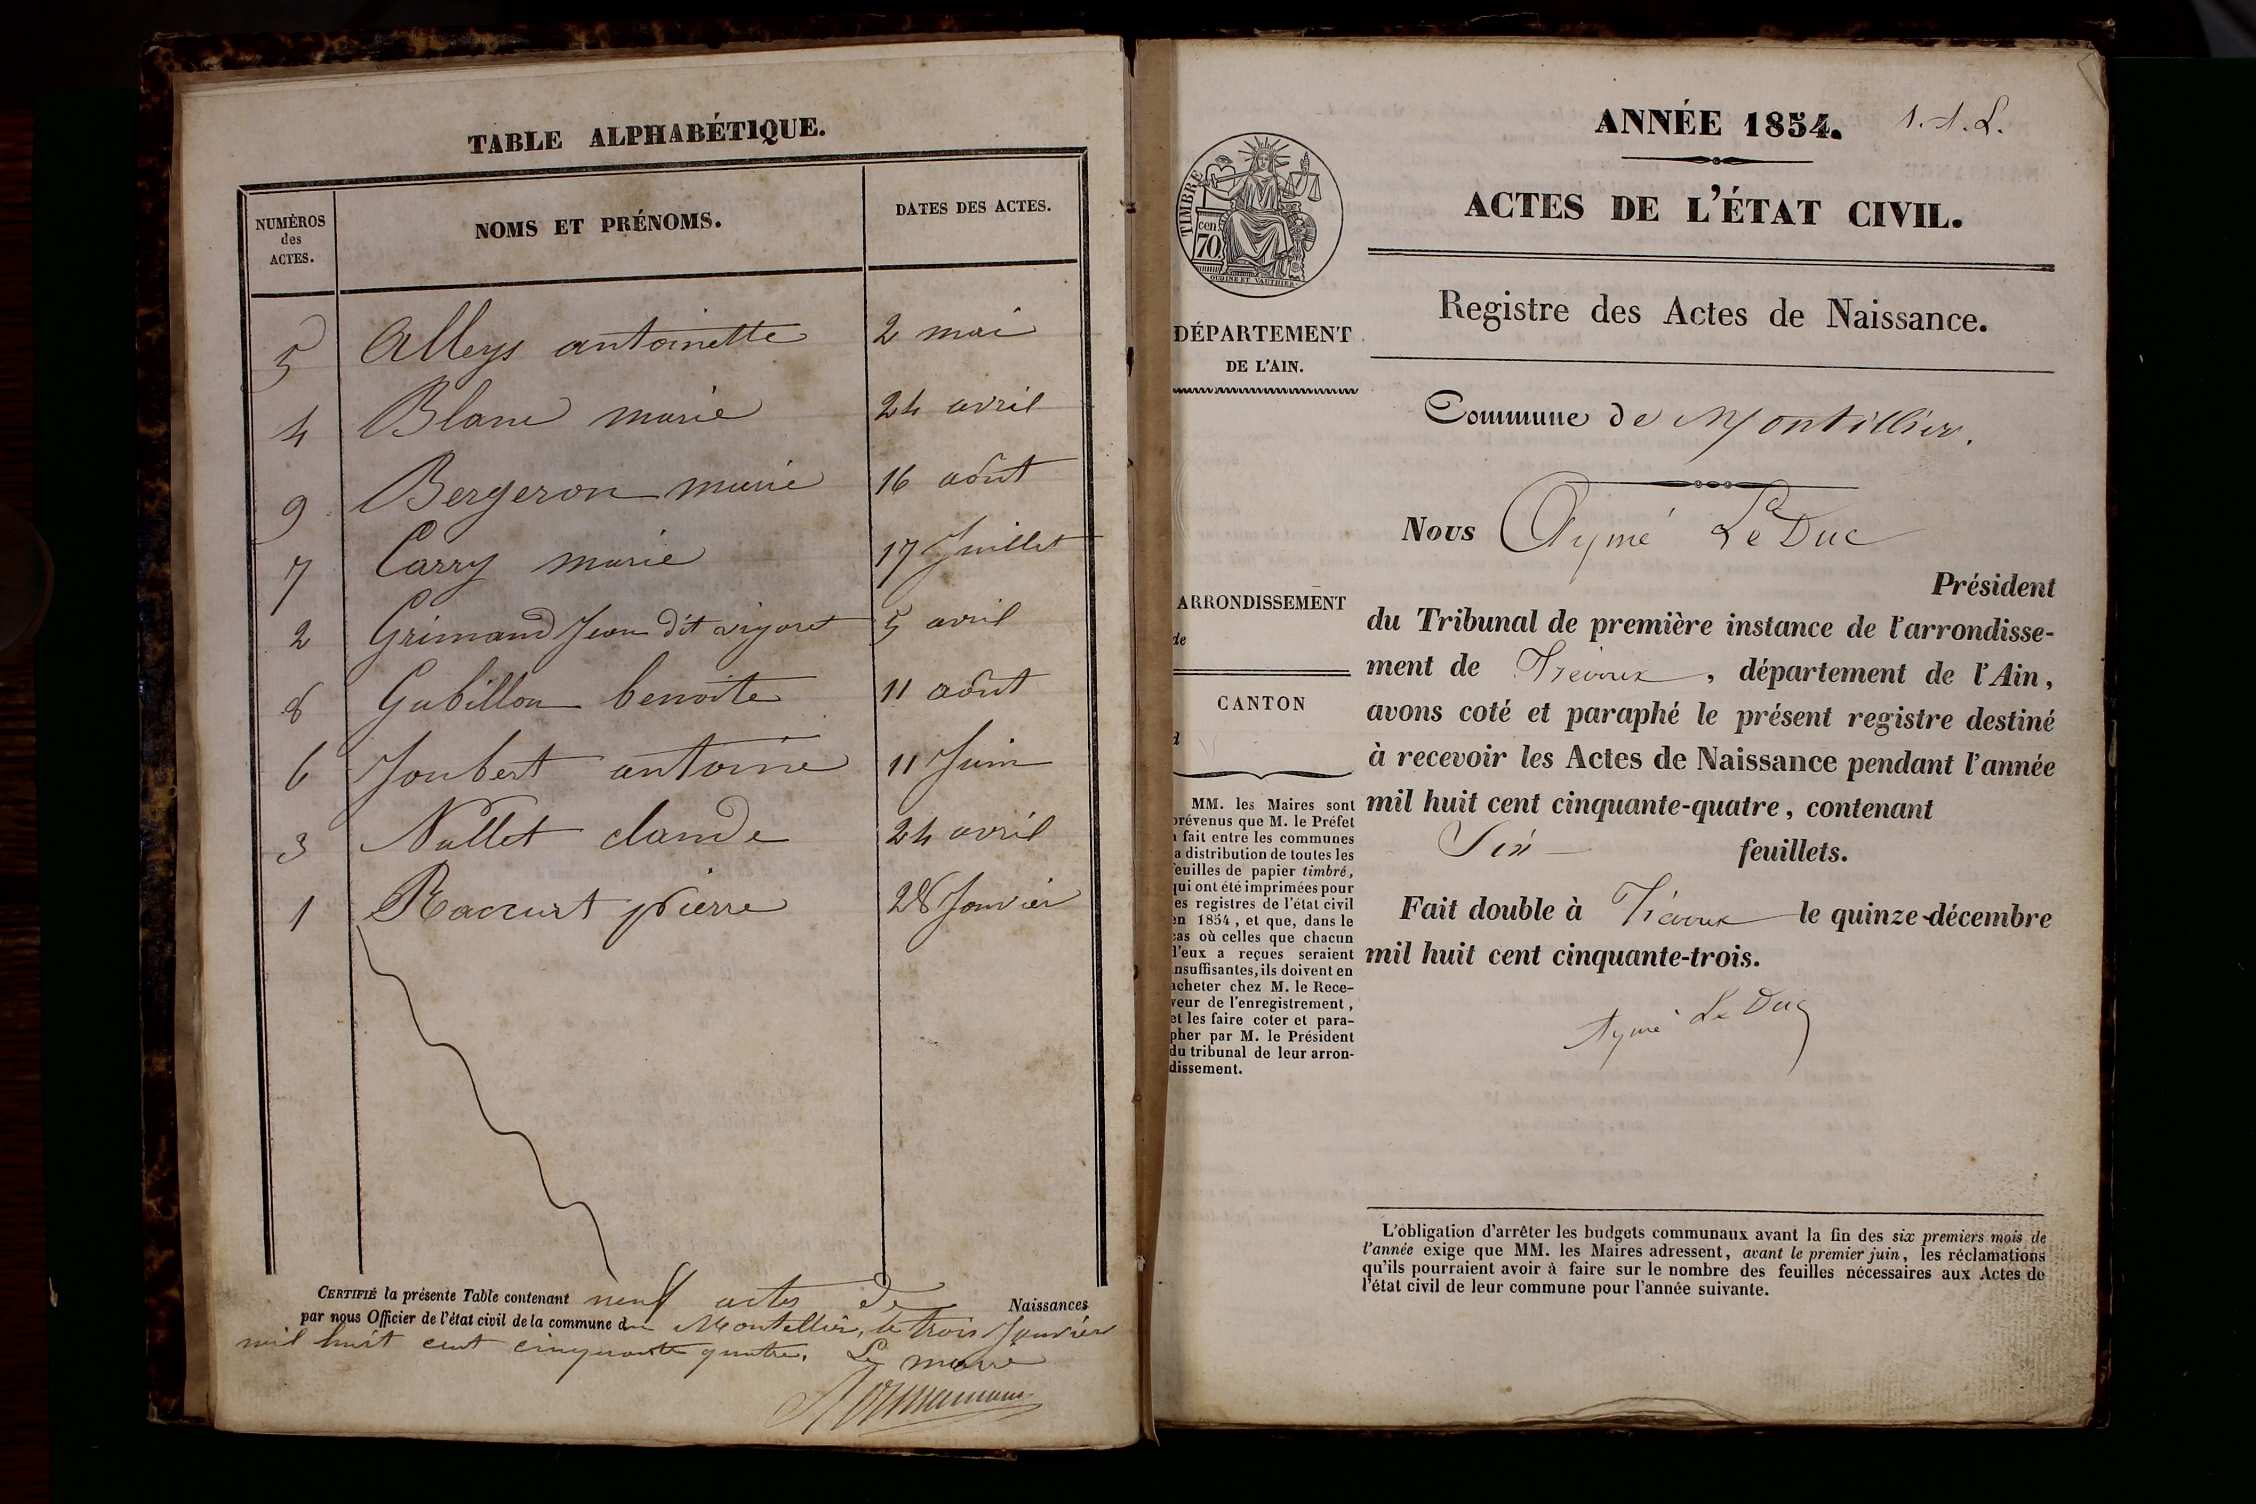 TABLE ALPHABÉTIQUE.
NUMÉROS
des
ACTES.
NOMS ET PRÉNOMS.
DATES DES ACTES.
5 Alleys antoinette 2 mai
4 Blanc marie 24 avril
9 Bergeron marie 16 août
7 Carry marie 17 Juillet
2 Grimaud Jean dit vigoret 5 avril
8 Gubillon benoite 11 août
6 Joubert antoine 11 Juin
3 Nallet claude 24 avril
1 Raccurt pierre 28 Janvier
CERTIFIÉ la présente Table contenant neuf actes de Naissances
par nous Officier de l'état civil de la commune de Montellier, le trois Janvier
mil huit cent cinquante quatre. Le maire
ANNÉE 1854. 1. 1. L.
ACTES DE L'ÉTAT CIVIL.
TIMBRE
70 cen
OUDINE ET VAUTHIER
Registre des Actes de Naissance.
DÉPARTEMENT
DE L'AIN.
Commune de Montillier.
Nous Aymé Le Duc
Président
ARRONDISSEMENT
de
CANTON
d
du Tribunal de première instance de l'arrondisse-
ment de Trévoux, département de l'Ain,
avons coté et paraphé le présent registre destiné
à recevoir les Actes de Naissance pendant l'année
mil huit cent cinquante-quatre, contenant
Six feuillets.
Fait double à Trévoux le quinze décembre
mil huit cent cinquante-trois.
Aymé Le Duc
MM. les Maires sont
prévenus que M. le Préfet
a fait entre les communes
la distribution de toutes les
feuilles de papier timbré,
qui ont été imprimées pour
les registres de l'état civil
en 1854, et que, dans le
cas où celles que chacun
d'eux a reçues seraient
insuffisantes, ils doivent en
acheter chez M. le Rece-
veur de l'enregistrement,
et les faire coter et para-
pher par M. le Président
du tribunal de leur arron-
dissement.
L'obligation d'arrêter les budgets communaux avant la fin des six premiers mois de
l'année exige que MM. les Maires adressent, avant le premier juin, les réclamations
qu'ils pourraient avoir à faire sur le nombre des feuilles nécessaires aux Actes de
l'état civil de leur commune pour l'année suivante.